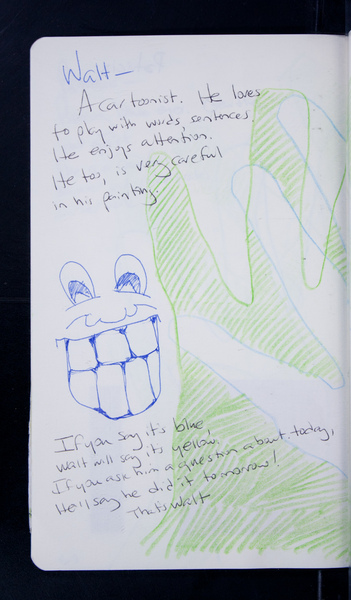 Walt -
A cartoonist. He loves
to play with words, sentences.
He enjoys attention.
He too, is very careful
in his painting.
If you say it's blue
Walt will say its yellow.
If you ask him a question about today,
He'll say he did it tomorrow!
Thats Walt